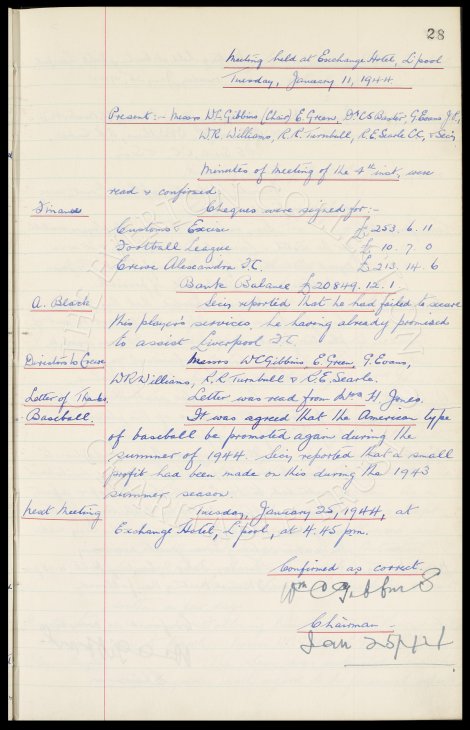 28
Meeting held at Exchange Hotel, L'pool
Tuesday, January 11, 1944
Present:- Messrs W.C. Gibbins (Chair) E. Green, Dr C.S. Baxter, G. Evans J.P.,
W.R. Williams, R.R. Turnbull, R.E. Searle C.C., & Secy.
Minutes of Meeting of the 4th inst. were
read & confirmed.
Finance Cheques were signed for:-
Customs & Excise £ 253. 6. 11
Football League £ 10. 7. 0
Crewe Alexandra F.C. £ 213. 14. 6
Bank Balance £20849. 12. 1
A. Black Secy. reported that he had failed to secure
this player's services, he having already promised
to assist Liverpool F.C.
Directors to Crewe Messrs W.C. Gibbins, E. Green, G. Evans,
W.R. Williams, R.R. Turnbull & R.E. Searle.
Letter of Thanks. Letter was read from H. Jones.
Baseball. It was agreed that the American type
of baseball be promoted again during the
summer of 1944. Secy. reported that a small
profit had been made on this during the 1943
summer season.
Next Meeting Tuesday, January 25, 1944, at
Exchange Hotel, L'pool, at 4.45 pm.
Confirmed as correct.
Wm C Gibbins
Chairman
Jan 25/44